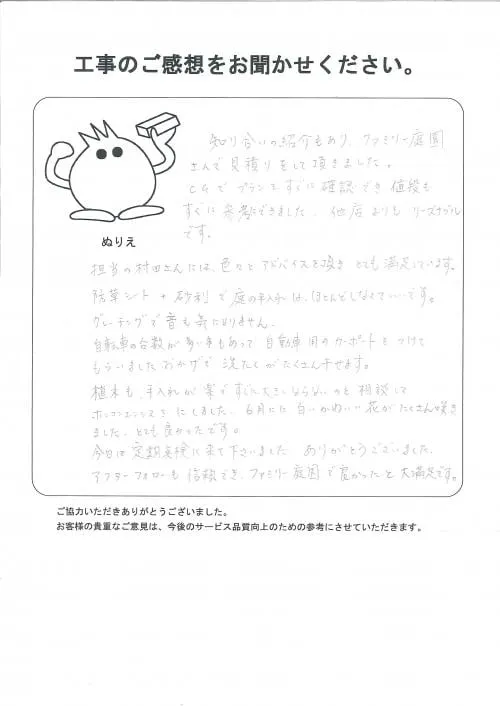 工事のご感想をお聞かせください。
知り合いの紹介もあり、ファミリー庭園
さんで見積りをして頂きました。
CGでプランをすぐに確認でき値段も
すぐに参考にできました。他店よりもリーズナブル
です。
ぬりえ
担当の村田さんには、色々とアドバイスを頂きとても満足しています。
防草シート+砂利で庭の手入れは、ほとんどしなくていいです。
グレーチングで音も気になりません。
自転車の台数が多い事もあって自動車用のカーポートをつけて
もらいましたおかげで洗たくがたくさん干せます。
植木も、手入れが楽ですぐに大きくならないのと相談して
ホンコンエンシスにしました。6月には白いかわいい花がたくさん咲き
ました。とても良かったです。
今日は定期点検に来て下さいましたありがとうございました。
アフターフォローも信頼でき、ファミリー庭園で良かったと大満足です。
ご協力いただきありがとうございました。
お客様の貴重なご意見は、今後のサービス品質向上のための参考にさせていただきます。